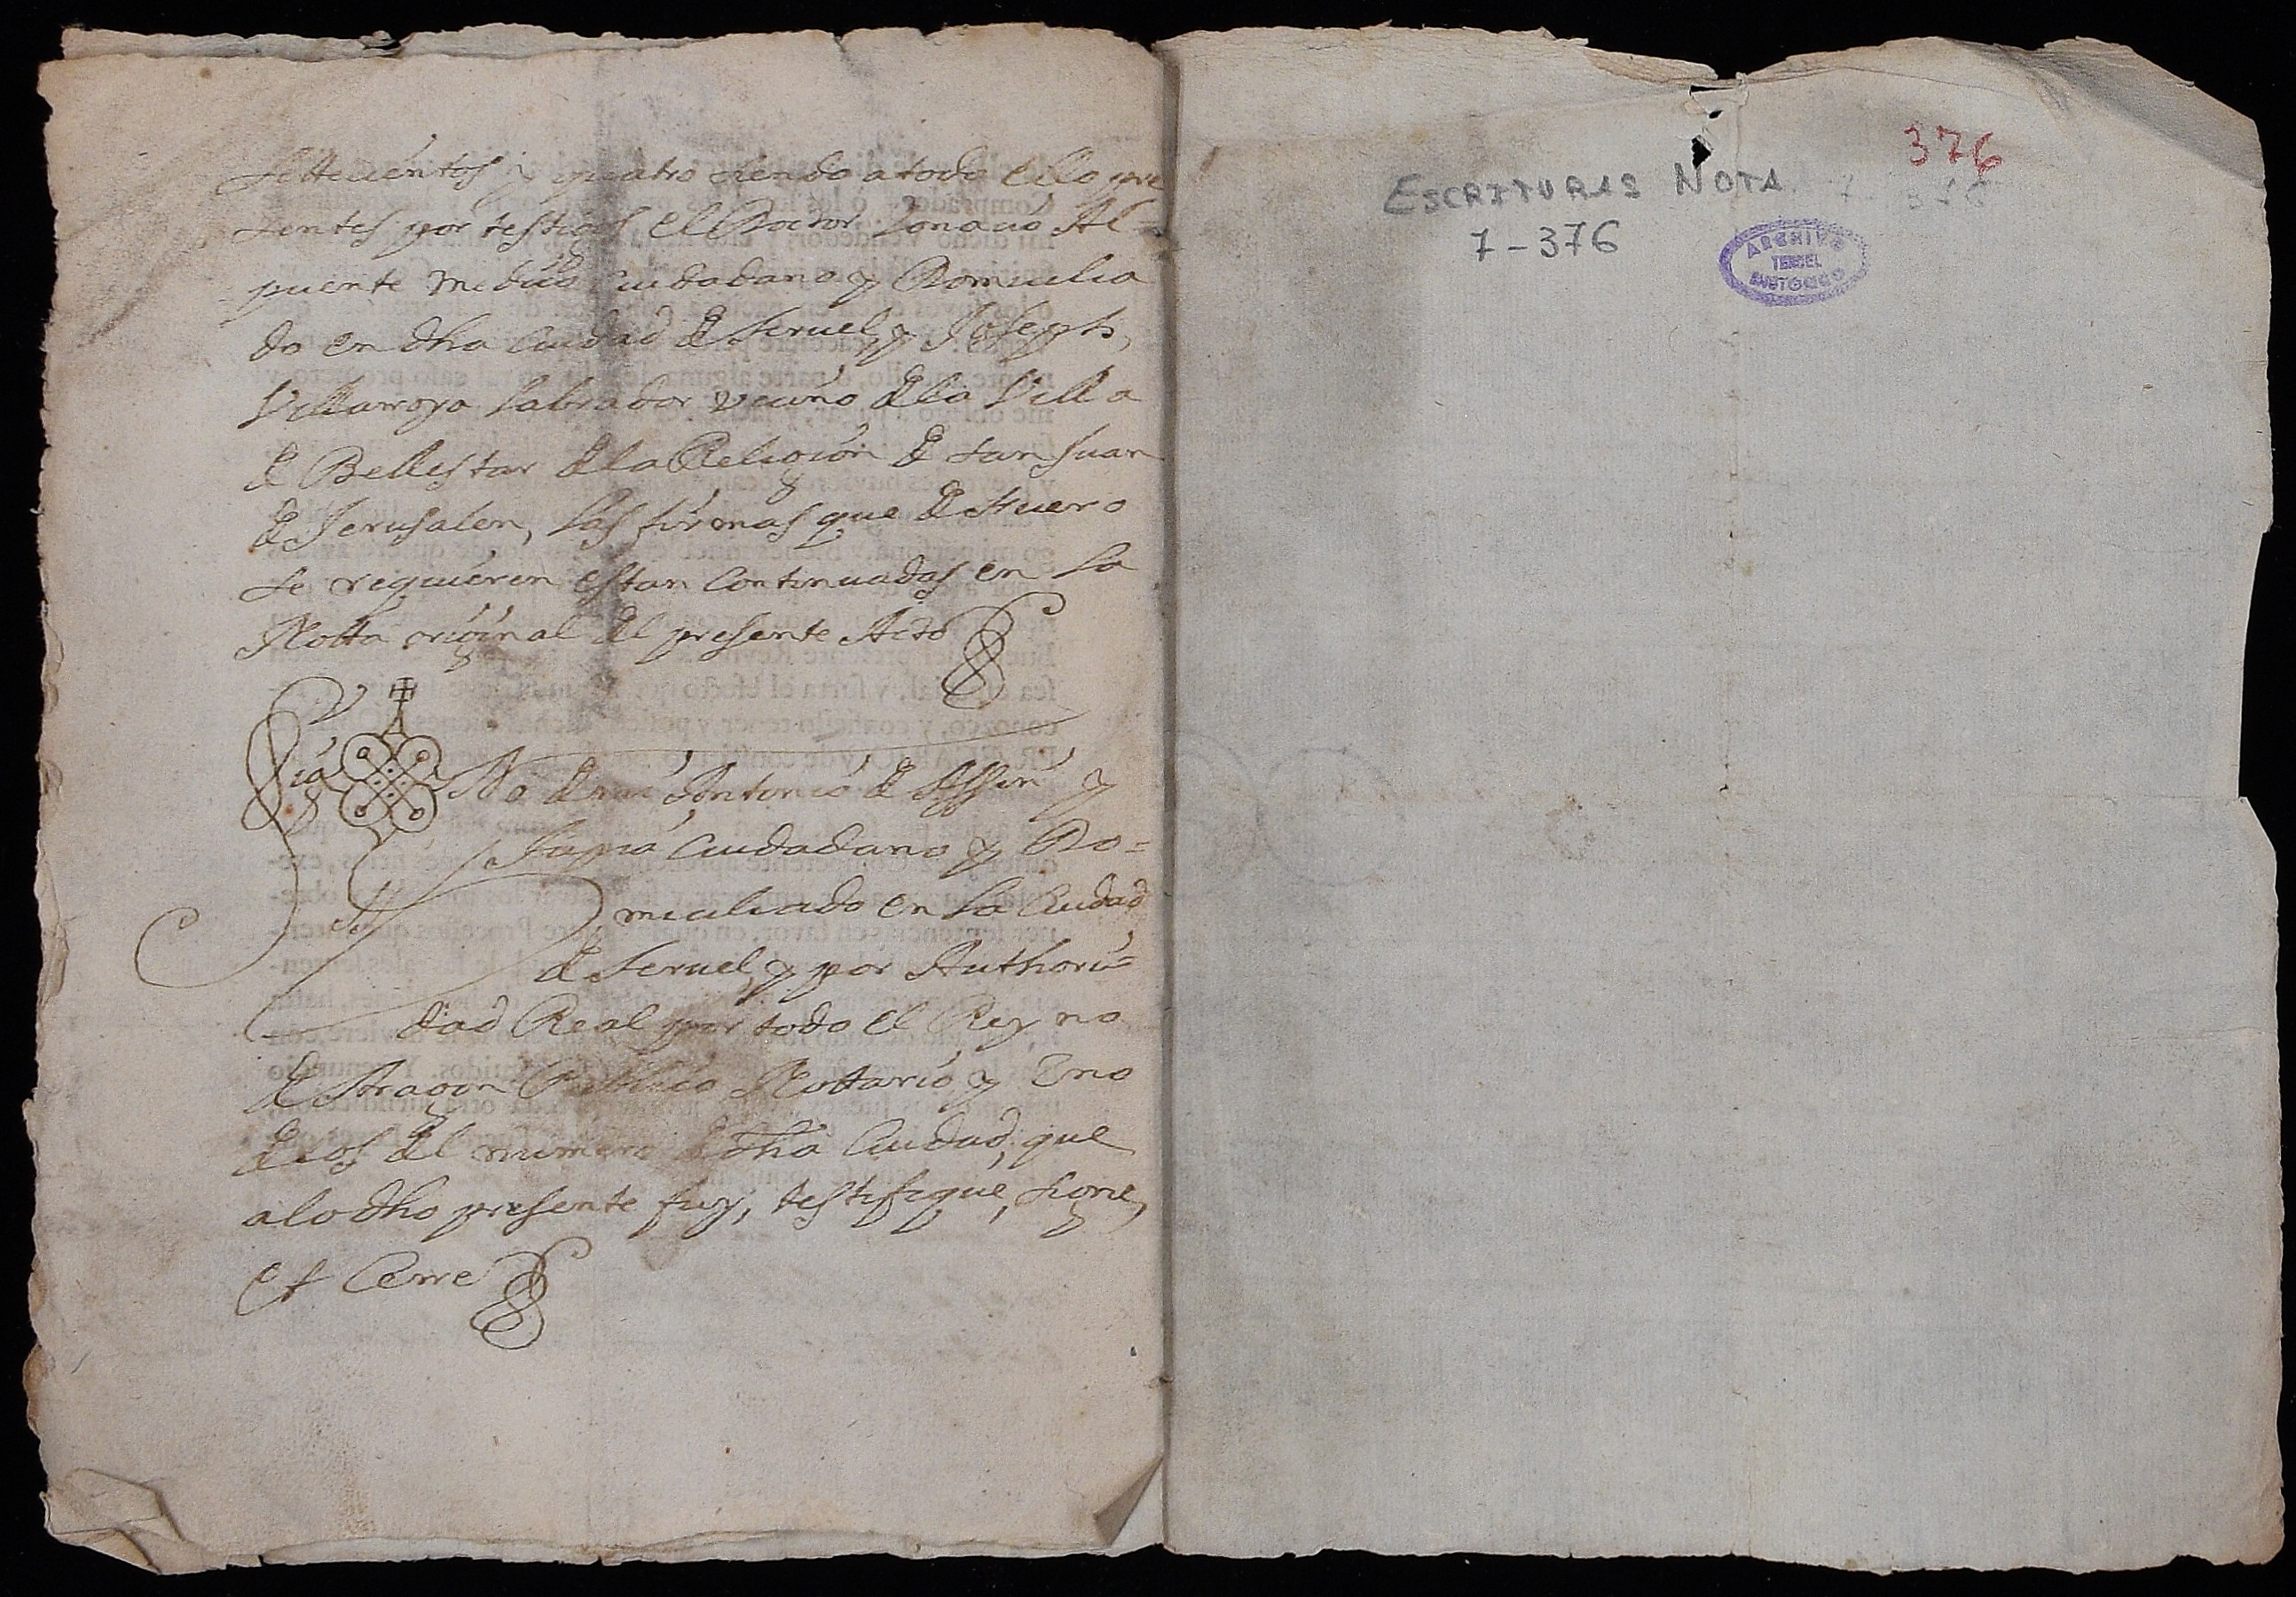 Settecientos y quatro siendo a todo ello pre
sentes por testigos el Doctor Ignacio Al=
puente Medico Ciudadano y Domicilia
do en dha Ciudad de Teruel, y Joseph,
Villarroya Labrador vecino dela Villa
de Bellestar dela Religion de San Juan
de Jerusalen, las firmas que de Fuero
se requieren estan Continuadas en la
Notta original del presente Acto
Sig No de mi Antonio de Assin y
Tapia Ciudadano y Do=
miciliado en la Ciudad
de Teruel, y por Authori=
dad Real por todo el Reyno
de Aragon Publico Nottario y Uno
delos del numero de dha Ciudad, que
alo dho presente fuy, testifique, signe,
et Cerre
376
ESCRITURAS NOTA. 7-376
7-376
ARCHIVO
TERUEL
HISTORICO